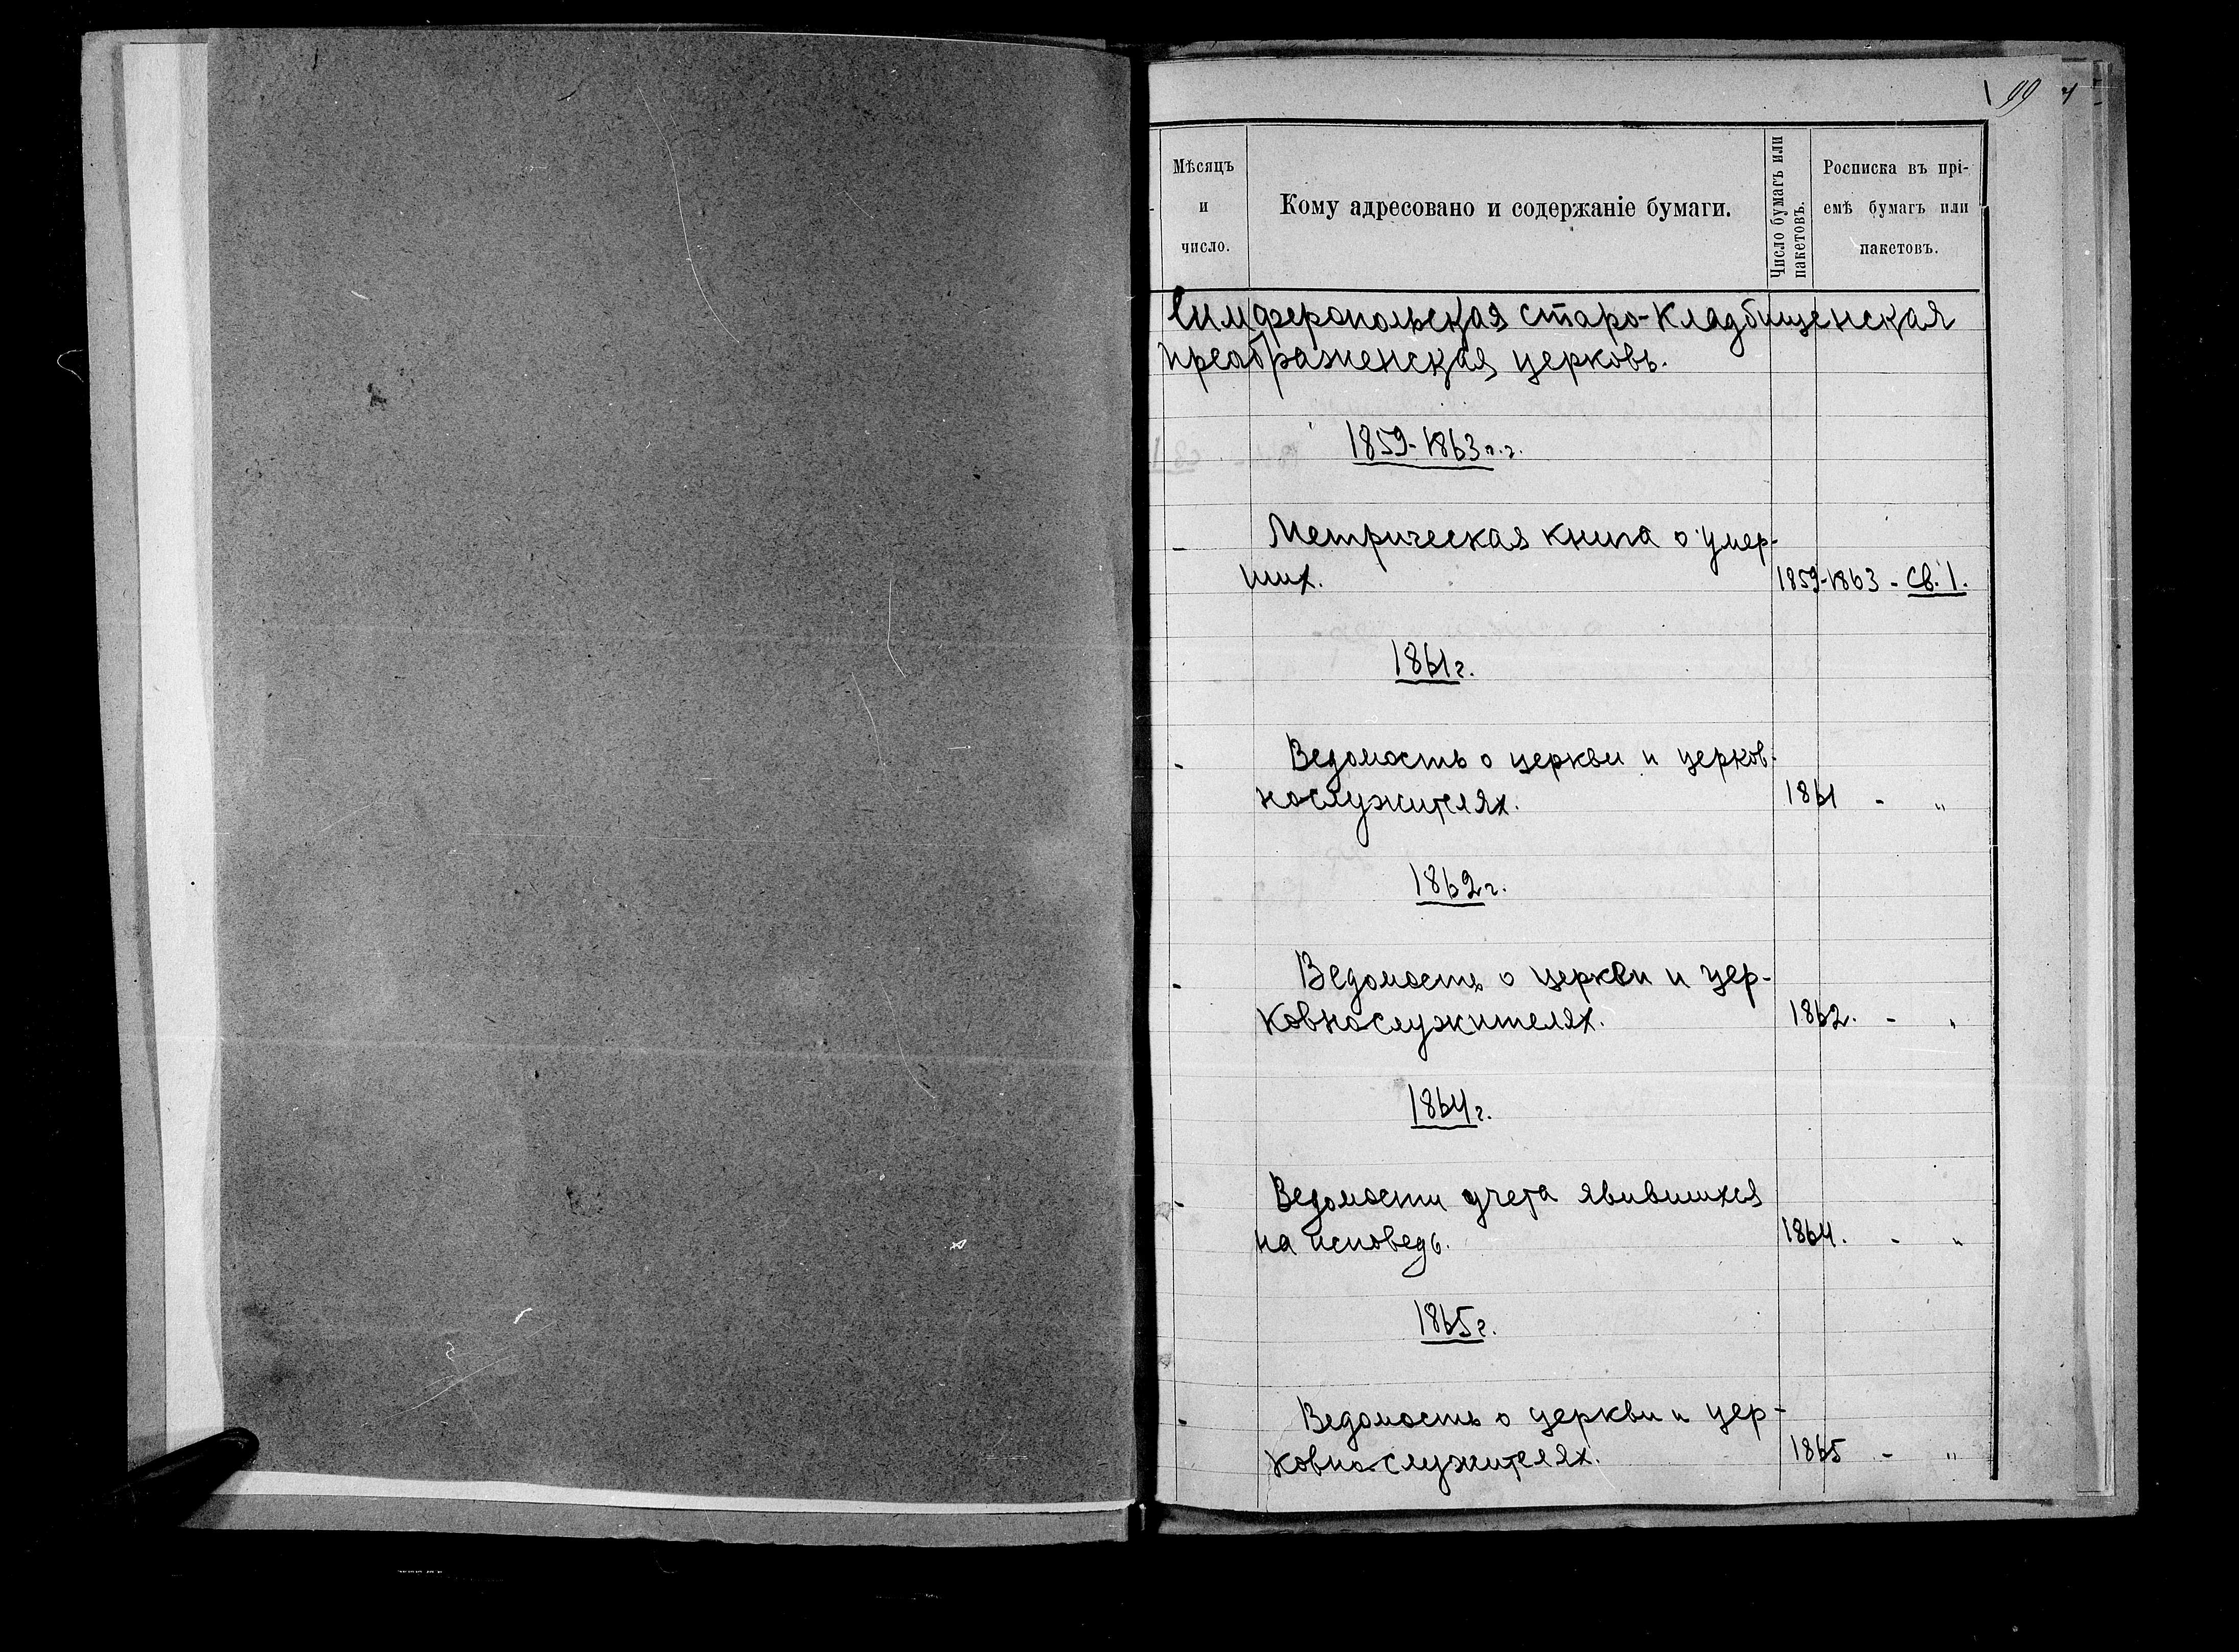 99
Мѣсяцъ
и
число.
Кому адресовано и содержаніе бумаги.
Число бумагъ или
пакетовъ.
Росписка въ прі-
емѣ бумагъ или
пакетовъ.
Симферопольская старо-кладбищенская
преображенская церковь.
1859-1863 г.г.
- Метрическая книга о умер-
ших. 1859-1863 - св. 1.
1861 г.
- Ведомость о церкви и церков-
нослужителях. 1861 - "
1862 г.
- Ведомость о церкви и цер-
ковнослужителях. 1862. - "
1864 г.
- Ведомости учета явившихся
на исповедь. 1864. - "
1865 г.
- Ведомость о церкви и цер-
ковнослужителях. 1865 - "